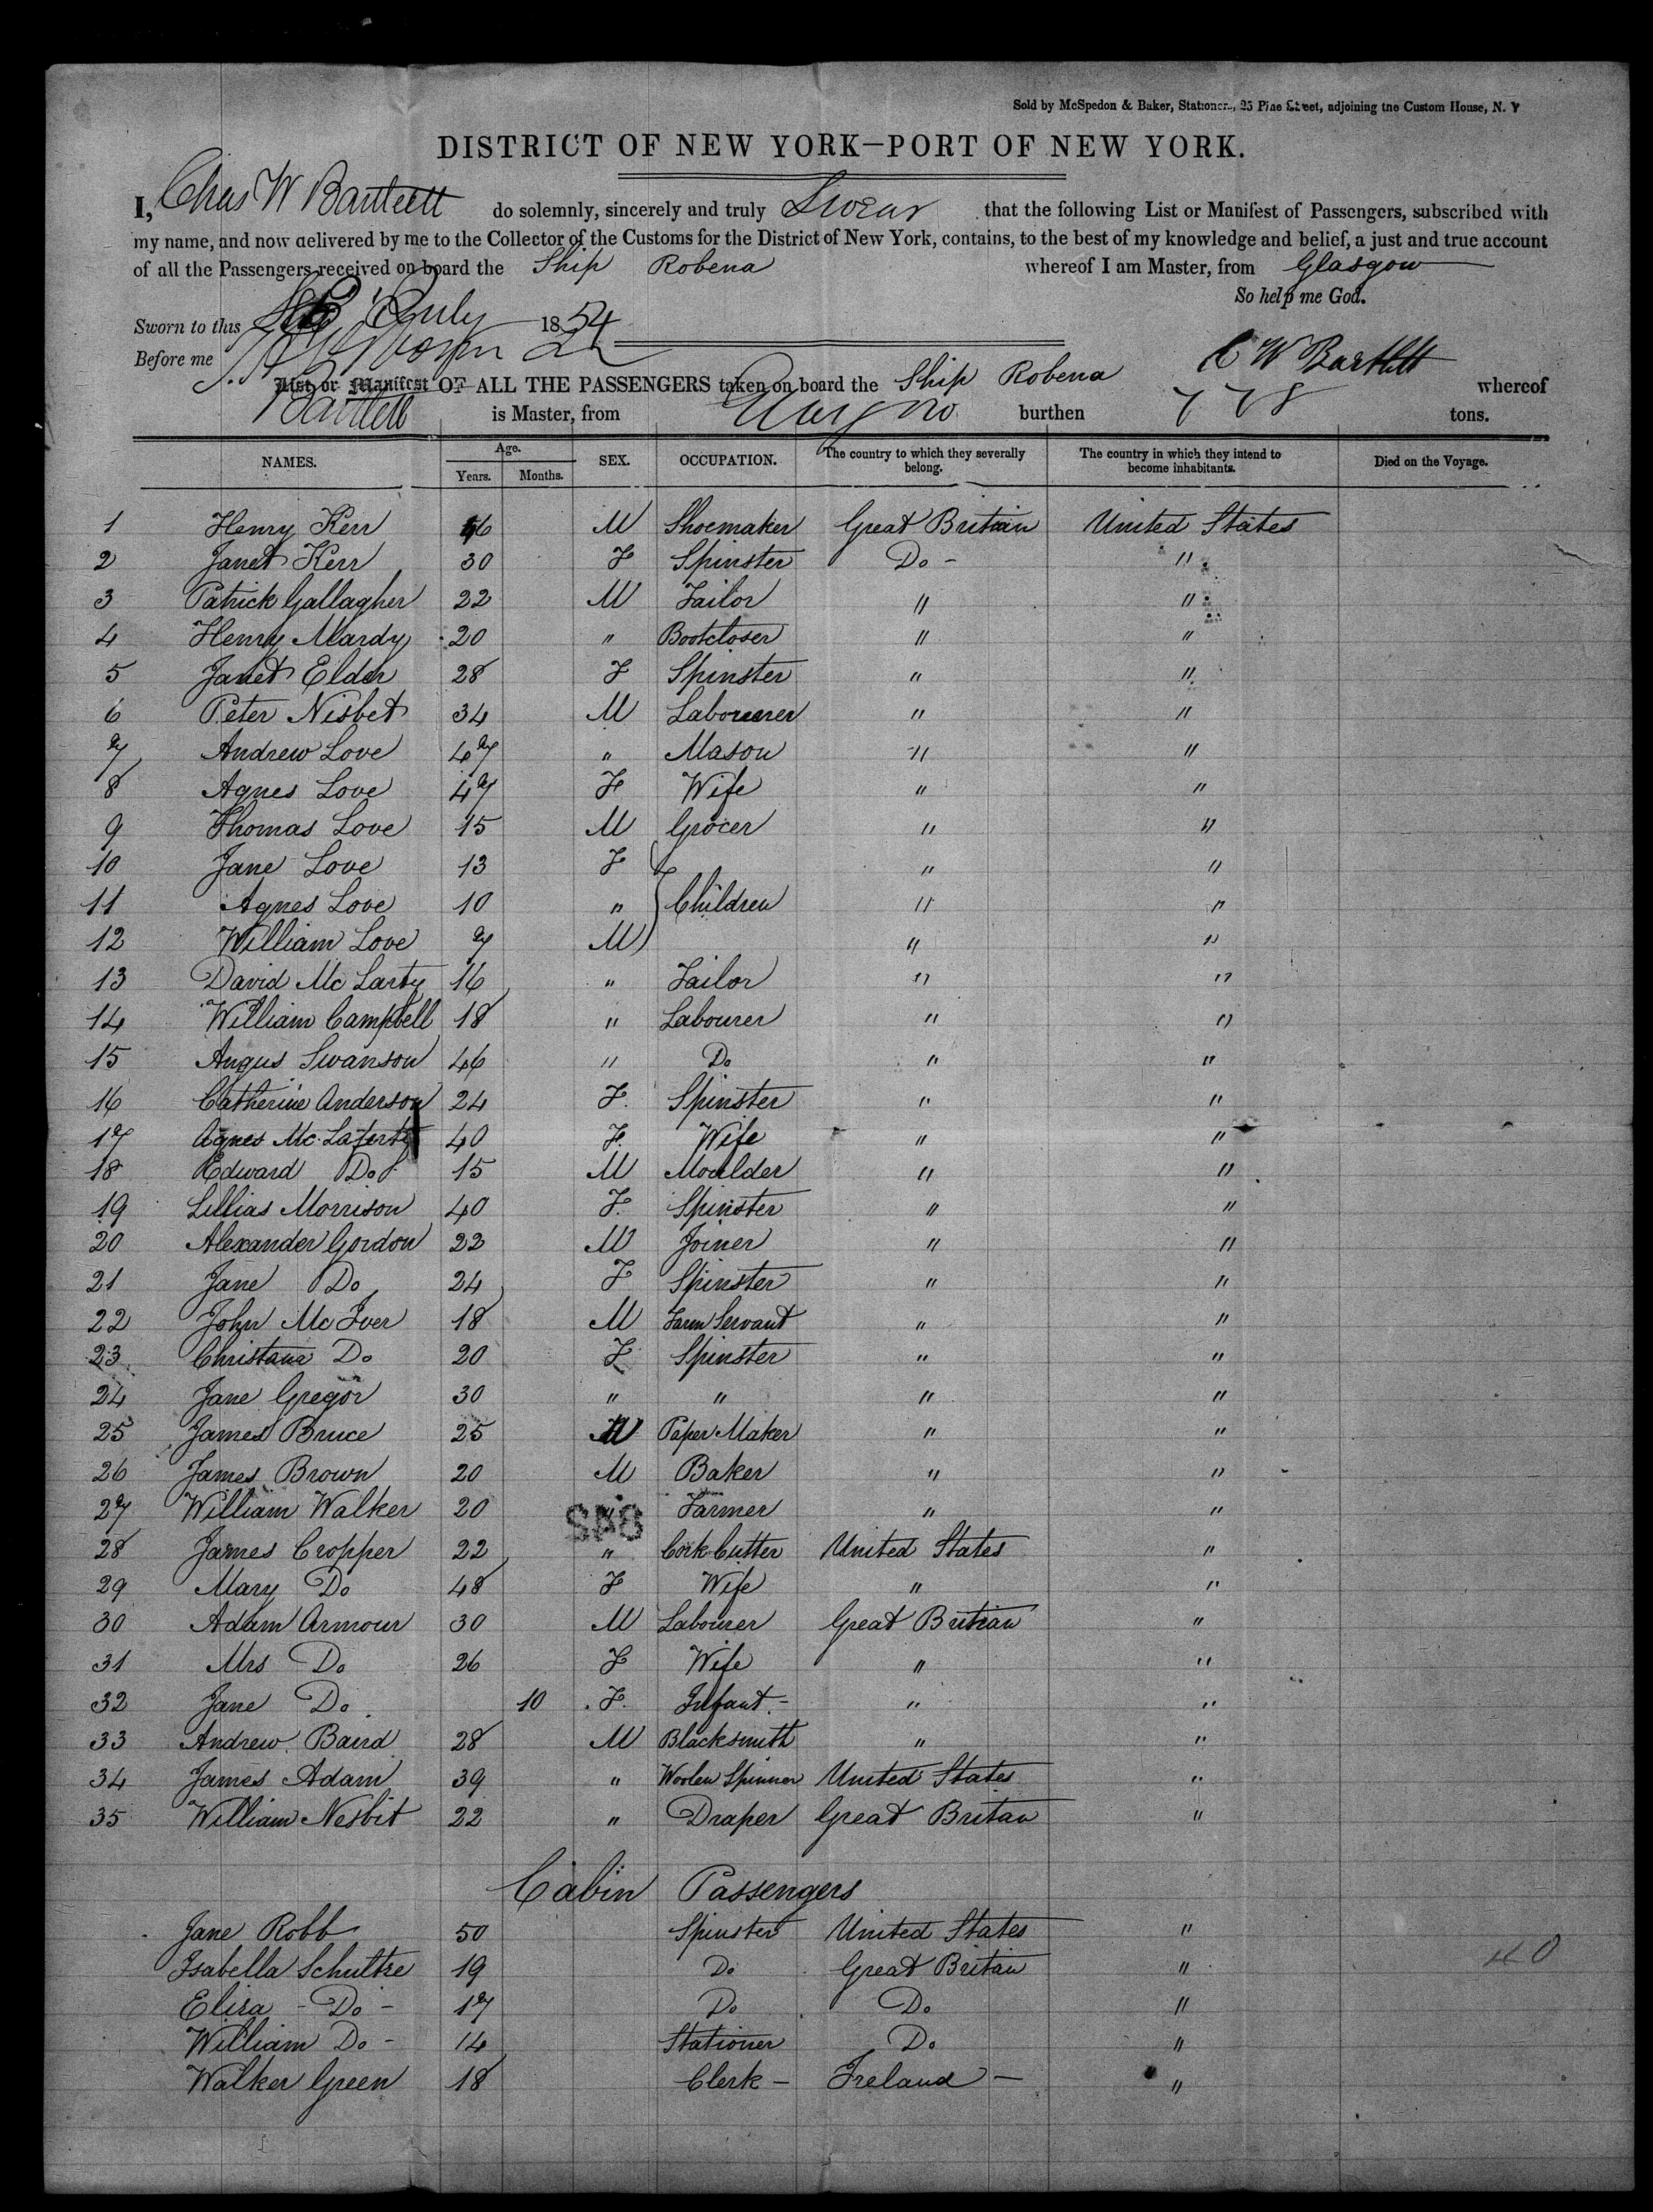 Sold by McSpedon & Baker, Stationers, 25 Pine Street, adjoining the Custom House, N. Y
DISTRICT OF NEW YORK—PORT OF NEW YORK.
I, Chas W Bartlett do solemnly, sincerely and truly Swear that the following List or Manifest of Passengers, subscribed with
my name, and now delivered by me to the Collector of the Customs for the District of New York, contains, to the best of my knowledge and belief, a just and true account
of all the Passengers received on board the Ship Robena whereof I am Master, from Glasgow
So help me God.
Sworn to this July 1854
Before me C W Bartlett
List or Manifest OF ALL THE PASSENGERS taken on board the Ship Robena whereof
Bartlett is Master, from Glasgow burthen 778 tons.
NAMES. Age. Years. Months. SEX. OCCUPATION. The country to which they severally belong. The country in which they intend to become inhabitants. Died on the Voyage.
1 Henry Kerr 46 M Shoemaker Great Britain United States
2 Janet Kerr 30 F Spinster Do - "
3 Patrick Gallagher 22 M Tailor " "
4 Henry Mardy 20 " Bootcloser " "
5 Janet Elder 28 F Spinster " "
6 Peter Nisbet 34 M Labourer " "
7 Andrew Love 47 " Mason " "
8 Agnes Love 47 F Wife " "
9 Thomas Love 15 M Grocer " "
10 Jane Love 13 F " "
11 Agnes Love 10 " Children " "
12 William Love 7 M " "
13 David Mc Larty 16 " Tailor " "
14 William Campbell 18 " Labourer " "
15 Angus Swanson 46 " Do " "
16 Catherine Anderson 24 F. Spinster " "
17 Agnes Mc Laferty 40 F. Wife " "
18 Edward Do 15 M Moulder " "
19 Lillias Morrison 40 F. Spinster " "
20 Alexander Gordon 22 M Joiner " "
21 Jane Do 24 F Spinster " "
22 John Mc Iver 18 M Farm Servant " "
23 Christana Do 20 F Spinster " "
24 Jane Gregor 30 " " " "
25 James Bruce 25 M Paper Maker " "
26 James Brown 20 M Baker " "
27 William Walker 20 " Farmer " "
28 James Cropper 22 " Cork Cutter United States "
29 Mary Do 48 F Wife " "
30 Adam Armour 30 M Labourer Great Britian "
31 Mrs Do 26 F Wife " "
32 Jane Do 10 F. Infant - " "
33 Andrew Baird 28 M Blacksmith " "
34 James Adam 39 " Woolen Spinner United States "
35 William Nesbit 22 " Draper Great Britan "
Cabin Passengers
Jane Robb 50 Spinster United States "
Isabella Schultze 19 Do Great Britain " 40
Eliza - Do - 17 Do Do "
William Do - 14 Stationer Do "
Walker Green 18 Clerk - Ireland - "